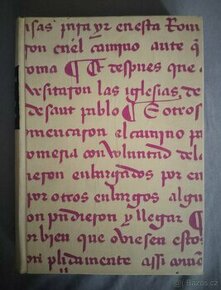 isas para yr en esta Rom
ron en el camino ante q
oma ¶ ¶ despues que
visitaron las iglesias de
de sant pablo ¶ E otros
mençaron el camino p
omeria con voluntad de
eron enbargados por en
por otros enbargos algun
on pudieron y llegar ¶
orbien que oviesen esto
on plidamente assi com